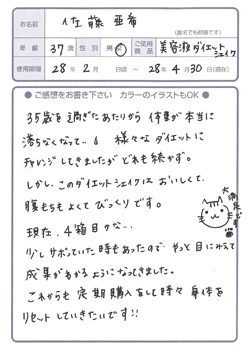 お名前 佐藤 亜希
(匿名でも結構です)
年齢 37歳 性別 男・女 ご使用商品 美容液ダイエットシェイク
使用期間 28年2月 日頃 ～ 28年4月30日(現在)
● ご感想をお書き下さい カラーのイラストもOK ●
35歳を過ぎたあたりから 体重が本当に
落ちなくなって。。。 様々なダイエットに
チャレンジしてきましたがどれも続かず。
しかし、このダイエットシェイクは おいしくて、
腹もちもよくて びっくりです。
現在、4箱目かな…
少しサボっていた時もあったので やっと目にみえて
成果がわかるようになってきました。
これからも 定期購入をして時々 身体を
リセットしていきたいです!!
大満足です